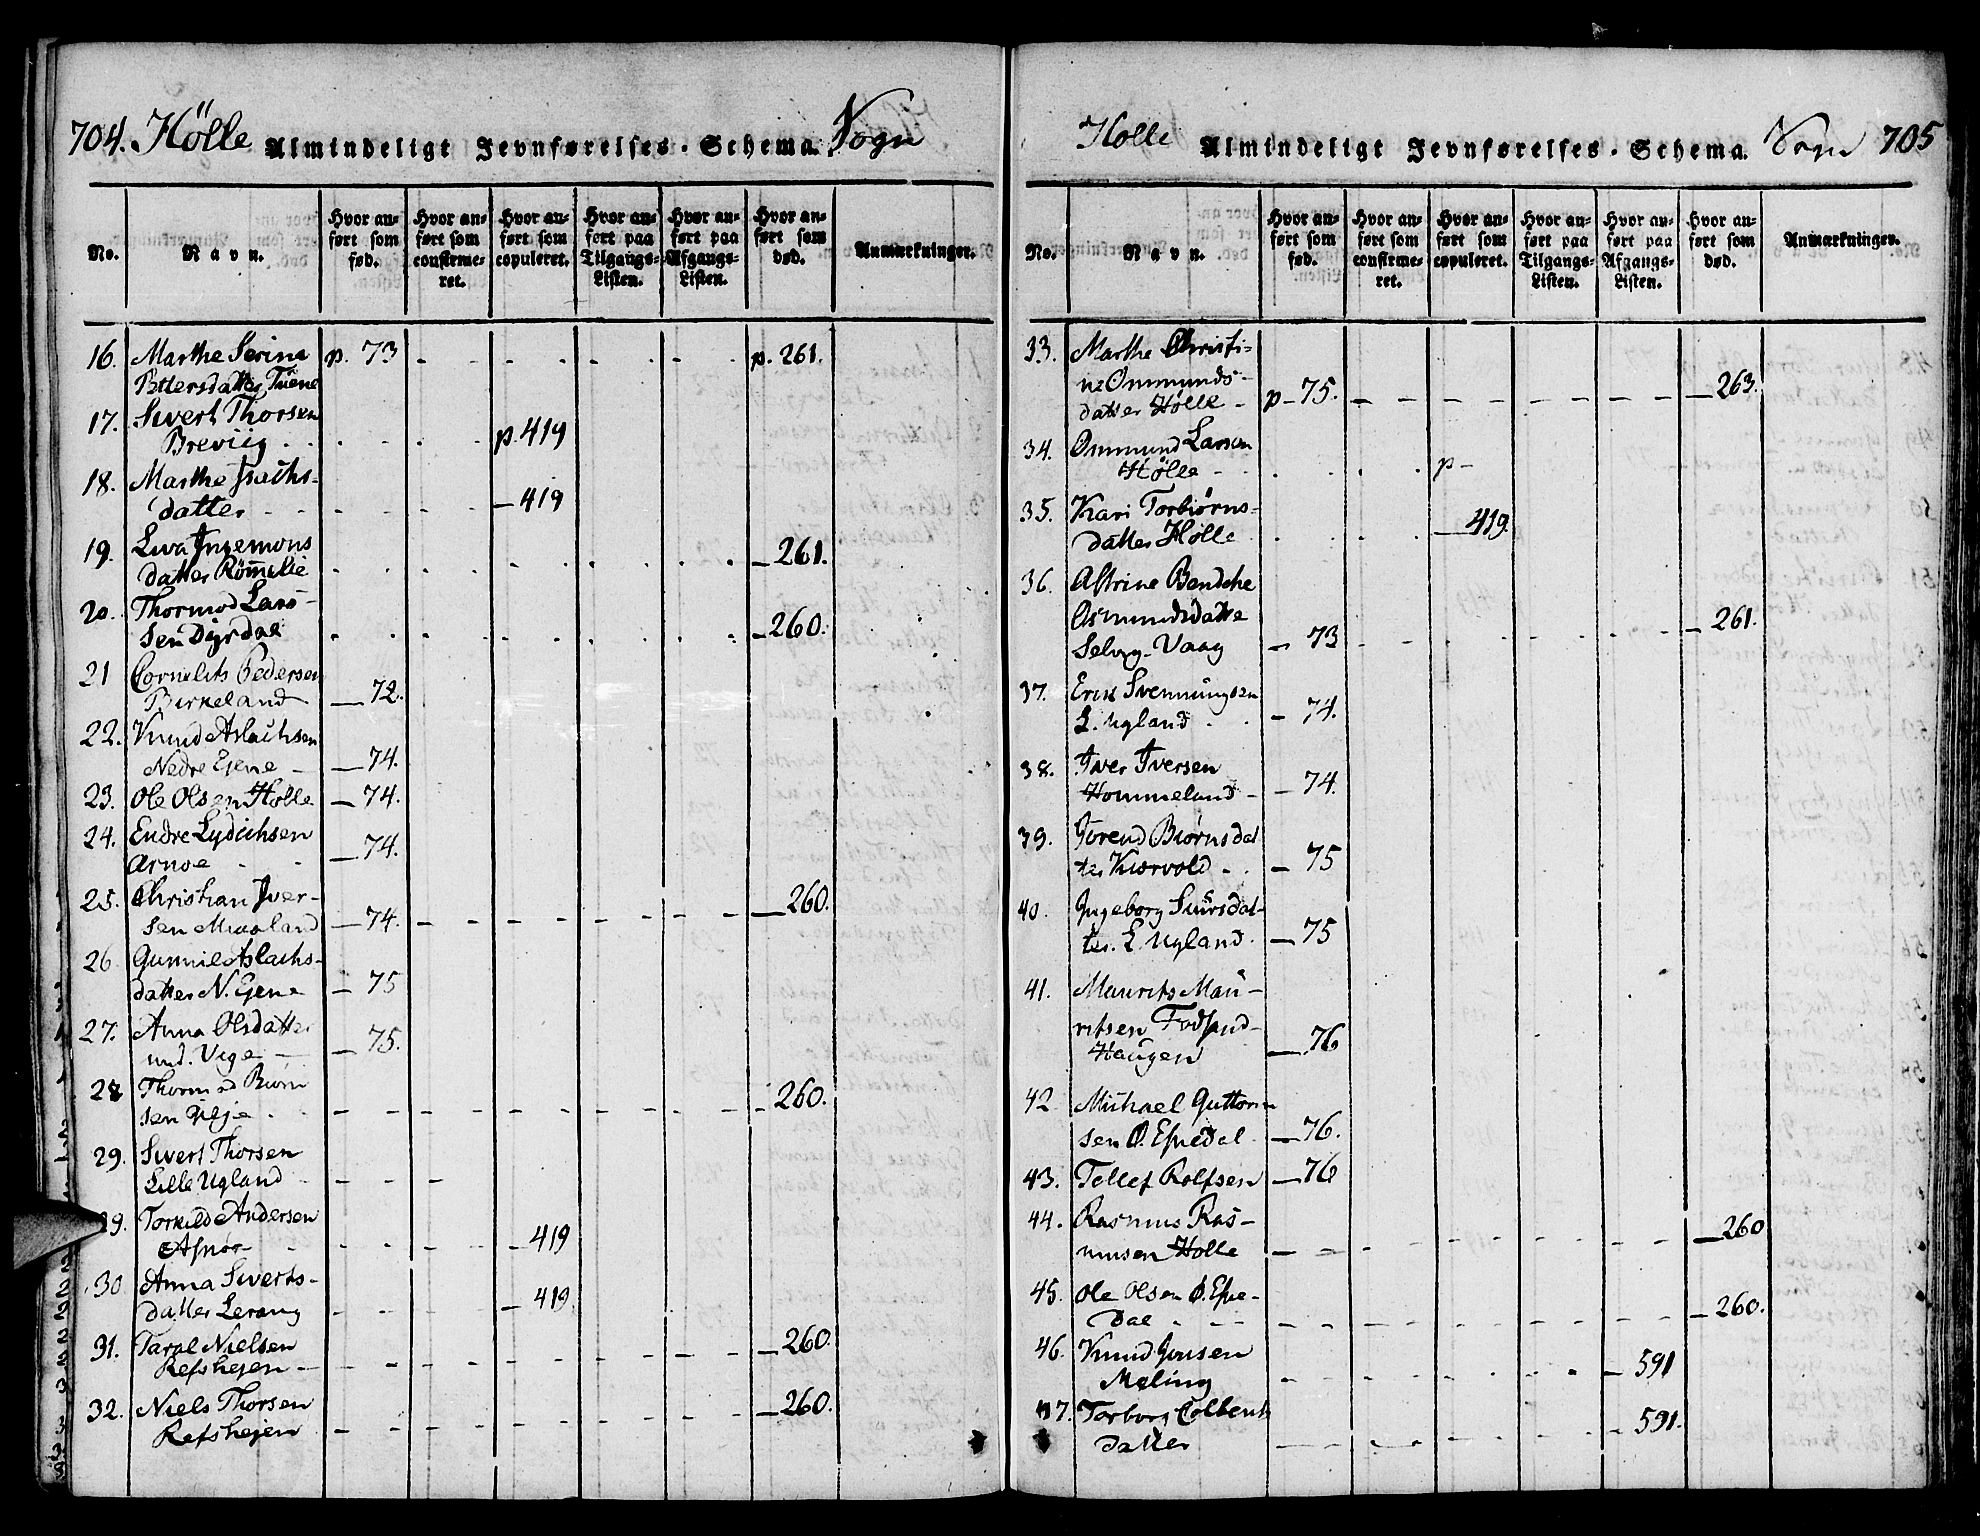 704. Hölle Almindeligt Jevnførelses-Schema. Sogn
No.
Navn.
Hvor anført som fød.
Hvor anført som confirmeret.
Hvor anført som copuleret.
Hvor anført paa Tilgangs-Listen.
Hvor anført paa Afgangs-Listen.
Hvor anført som død.
Anmærkninger.
16. Marthe Serina p. 73 - - - - p. 261.
Pettersdatter Tuene
17. Sivert Thorsen
Brevüg . . . . p. 419
18. Marthe Isachs-
datter - - - - - 419
19. Liva Ingemons
datter Römelie . . . . . . - 261.
20. Thormod Lars-
sen Dyrdal . . . . . . - 260.
21 Cornelits Pedersen
Birkeland - 72.
22. Knud Aslachsen
Nedre Ejene - 74.
23. Ole Olsen Hölle - 74.
24. Endre Lydichsen
Arnoe - - 74.
25. Christian Iver-
sen Miaaland - 74. - - - - - 260.
26. Gunnil Aslachs-
datter N. Ejene - 75
27. Anna Olsdatter
und. Vige - - 75.
28 Thormod Biørn
sen Gilje . . - - - - - - 260.
29. Sivert Thorsen
Lille Ugland - - - -
29. Torkild Andersen
Apnör - - - - - 419
30 Anna Siverts-
datter Lerang - - - - 419
31. Taral Nielsen
Refshejen - - - - - - - 260.
32. Niels Thorsen
Refshejen - - - - - - - 260.
Holle Almindeligt Jevnførelses-Schema. Sogn 705
No.
Navn.
Hvor anført som fød.
Hvor anført som confirmeret.
Hvor anført som copuleret.
Hvor anført paa Tilgangs-Listen.
Hvor anført paa Afgangs-Listen.
Hvor anført som død.
Anmærkninger.
33. Marthe Christi-
ne Ommunds-
datter Hölle - p - 75. - - - - - - 263.
34. Ommund Larsen
Hölle - - . . . p -
35. Kari Torbiörns-
datter Hölle . . . - 419.
36. Astrine Bendche
Osmundsdatter
Selvig-Vaag - 73 - - - - - - 261.
37. Erik Svenningsen
L. Ugland . . - 74.
38. Iver Iversen
Hommeland - - 74.
39. Gorend Biørnsdat
ter Kiørvold - . - 75
40. Ingeborg Siursdat-
ter. L. Ugland. - 75
41. Maurits Mau-
ritsen Fodsand-
Haugen - 76
42 Michael Guttorm
sen Ø. Espedal - 76.
43. Tellef Rolfsen - 76
44. Rasmus Ras-
musen Holle - - - - - - - 260
45. Ole Olsen Ø. Espe-
dal - - - - - - - - - 260.
46. Knud Jonsen
Meling - - - - - - 591
47. Torborg Colbents
datter - - - - - - 591.